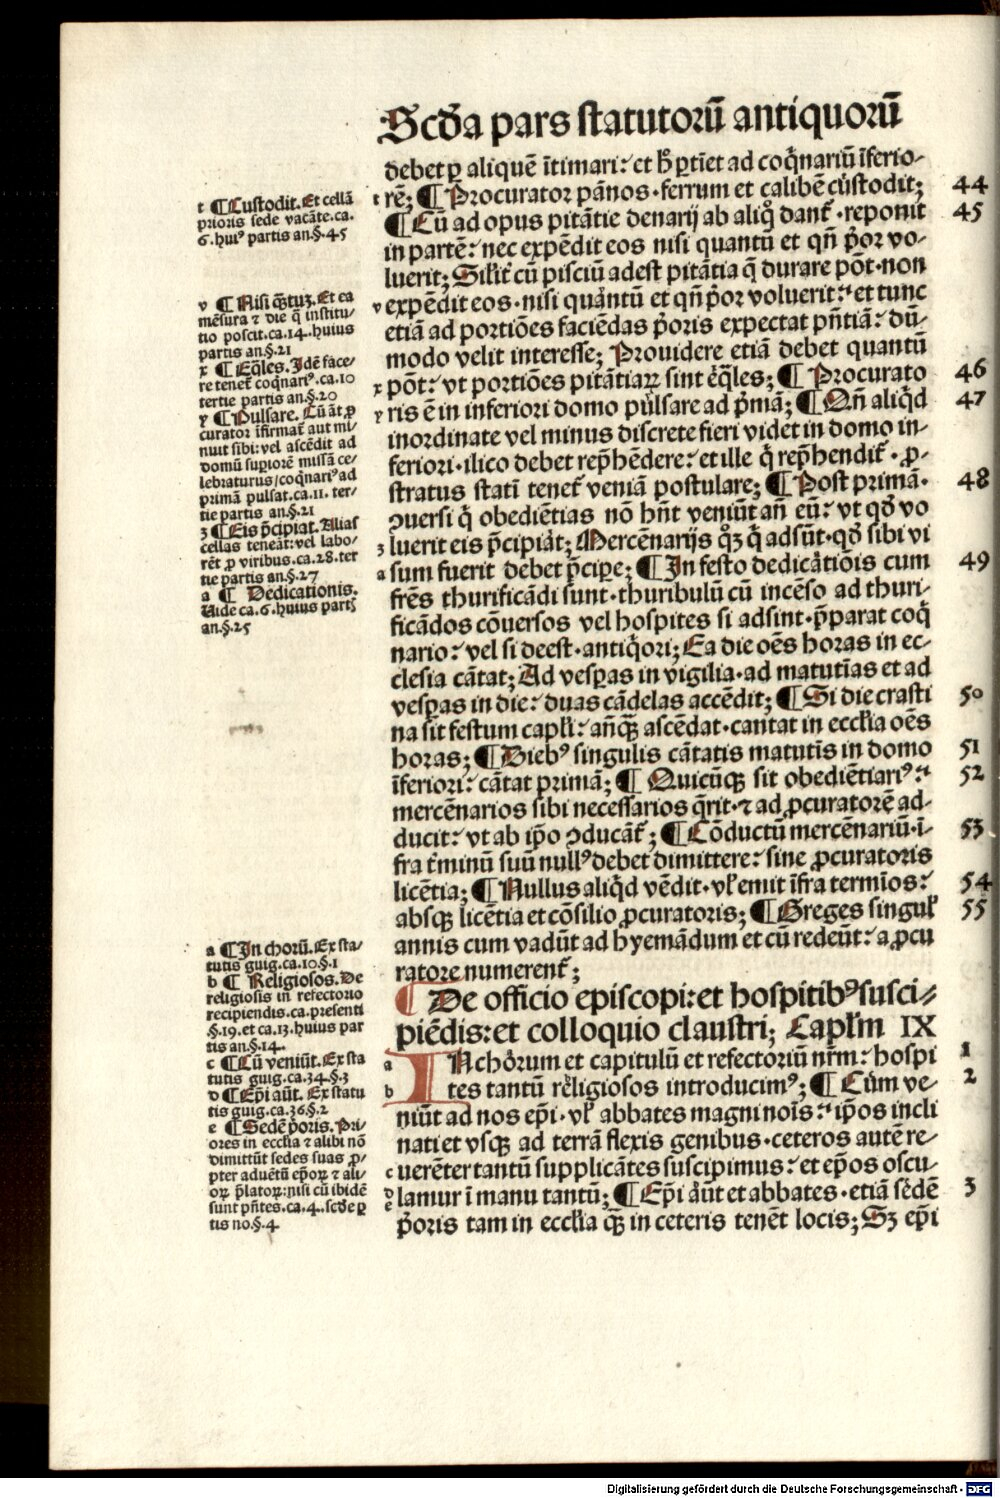 Scďa pars statutorū antiquorū
debet ꝑ aliquē ītimari: et h̊ ꝑtiet ad coq̄nariū īferio-
rē; ¶ Procurator pānos · ferrum et calibē custodit;
¶ Cū ad opus pitātie denarij ab aliq̊ dant᷑ · reponit
in partē: nec expēdit eos nisi quantū et qn̄ p̄or vo-
luerit; Silit᷑ cū pisciū adest pitātia q̄ durare pōt · non
expēdit eos · nisi quātū et qn̄ p̄or voluerit: et tunc
etiā ad portiōes faciēdas p̄oris expectat pn̄tiā: dū-
modo velit interesse; Prouidere etiā debet quantū
pōt: vt portiōes pitātiaꝝ sint eq̄les; ¶ Procurato
ris ē in inferiori domo pulsare ad p̄mā; ¶ Qn̄ aliq̄d
inordinate vel minus discrete fieri videt in domo in-
feriori · ilico debet rep̄hēdere: et ille q̄ rep̄hendit᷑ · ꝓ-
stratus statī tenet᷑ veniā postulare; ¶ Post primā ·
ꝯuersi q̄ obediētias nō hn̄t veniūt an̄ eū: vt qď vo
luerit eis p̄cipiat; Mercenarijs q̊ꝫ q̄ adsūt · qď sibi vi
sum fuerit debet p̄cipe; ¶ In festo dedicatiōis cum
frēs thurificādi sunt · thuribulū cū incēso ad thuri-
ficādos cōuersos vel hospites si adsint · p̄parat coq̄
nario: vel si deest · antiq̄ori; Ea die oēs horas in ec-
clesia cātat; Ad vesꝑas in vigilia · ad matutīas et ad
vesꝑas in die: duas cādelas accēdit; ¶ Si die crasti
na sit festum capłi: an̄qꝫ ascēdat · cantat in eccłia oēs
horas; ¶ Diebꝰ singulis cātatis matutīs in domo
īferiori: cātat primā; ¶ Quicūqꝫ sit obediētiariꝰ:
mercēnarios sibi necessarios q̄rit · ⁊ ad ꝓcuratorē ad-
ducit: vt ab ip̄o ꝯducāt᷑; ¶ Cōductū mercēnariū · ī-
fra t᷑minū suū nullꝰ debet dimittere: sine ꝓcuratoris
licētia; ¶ Nullus aliq̄d vēdit · vł emit īfra termīos:
absqꝫ licētia et cōsilio ꝓcuratoris; ¶ Greges singuł
annis cum vadūt ad hyemādum et cū redeūt: a ꝓcu
ratore numerent᷑;
¶ De officio episcopi: et hospitibꝰ susci-
piēdis: et colloquio claustri; Capłm IX
IN chorum et capitulū et refectoriū nr̄m: hospi
tes tantū religiosos introducimꝰ; ¶ Cum ve-
niūt ad nos ep̄i · vł abbates magni noīs: ip̄os incli
nati et vsqꝫ ad terrā flexis genibus · ceteros autē re-
uerēter tantū supplicātes suscipimus: et ep̄os oscu-
lamur ī manu tantū; ¶ Ep̄i aūt et abbates · etiā sedē
p̄oris tam in eccłia qꝫ in ceteris tenēt locis; Sꝫ ep̄i
t ¶ Custodit. Et cellā
prioris sede vacāte. ca.
6. huiꝰ partis an. §. 45
v ¶ Nisi q̄tuꝫ. Et ea
mēsura ⁊ die q̄ institu-
tio poscit. ca. 14. huius
partis an. §. 21
x ¶ Eq̄les. Idē face-
re tenet᷑ coqnariꝰ. ca. 10
tertie partis an. §. 20
y ¶ Pulsare. Cū āt ꝓ
curator īfirmat᷑ aut mi-
nuit sibi: vel ascēdit ad
domū suꝑiorē missā ce-
lebraturus / coqnariꝰ ad
primā pulsat. ca. 11. ter-
tie partis an. §. 21
ꝫ ¶ Eis p̄cipiat. Alias
cellas teneāt: vel labo-
rēt ꝓ viribus. ca. 28. ter
tie partis an. §. 27
a ¶ Dedicationis.
Uide ca. 6. huius part᷑
an. §. 25
a ¶ In chorū. Ex sta-
tutis guig. ca. 10. §. 1
b ¶ Religiosos. De
religiosis in refectorio
recipiendis. ca. presenti
§. 19. et ca. 13. huius par
tis an. §. 14.
c ¶ Cū veniūt. Ex sta
tutis guig. ca. 34. §. 3
d ¶ Ep̄i aūt. Ex statu
tis guig. ca. 36. §. 2
e ¶ Sedē p̄oris. Pri-
ores in eccłia ⁊ alibi nō
dimittūt sedes suas ꝓ-
pter aduētū ep̄oꝝ ⁊ ali-
oꝝ p̄latoꝝ: nisi cū ibidē
sunt pn̄tes. ca. 4. scďe ꝑ
tis no. §. 4.
44
45
46
47
48
49
50
51
52
53
54
55
1
2
3
Digitalisierung gefördert durch die Deutsche Forschungsgemeinschaft - DFG